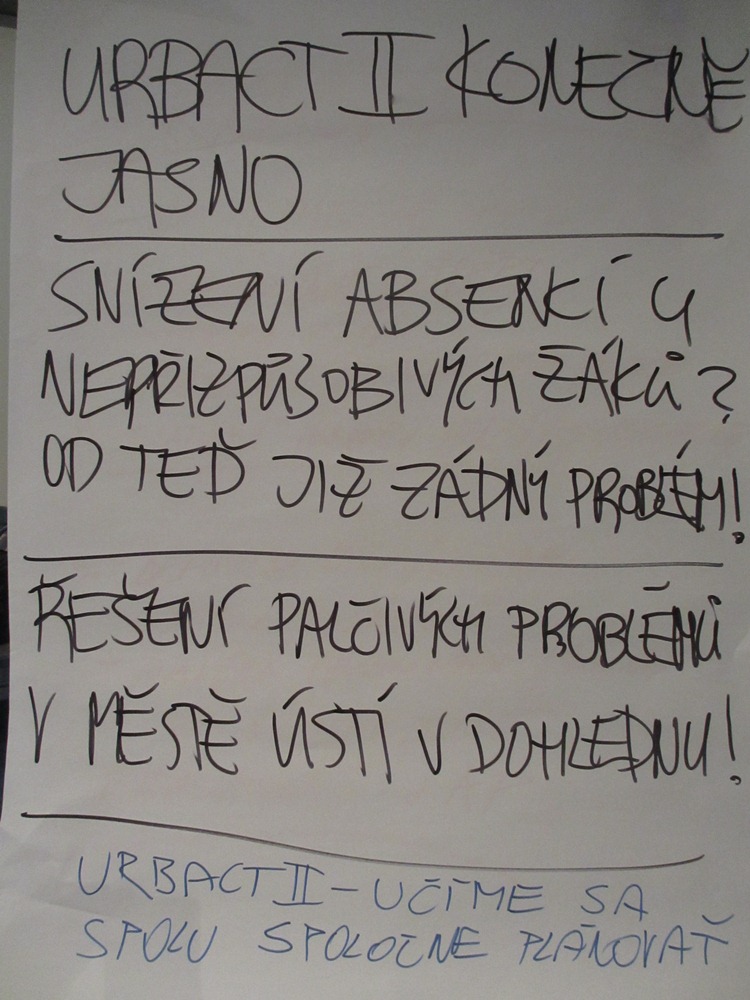 URBACT II KONEČNĚ
JASNO
SNÍŽENÍ ABSENCÍ U
NEPŘIZPŮSOBIVÝCH ŽÁKŮ?
OD TEĎ JIŽ ŽÁDNÝ PROBLÉM!
ŘEŠENÍ PALČIVÝCH PROBLÉMŮ
V MĚSTĚ ÚSTÍ V DOHLEDNU!
URBACT II – UČÍME SA
SPOLU SPOLOČNE PLÁNOVAŤ